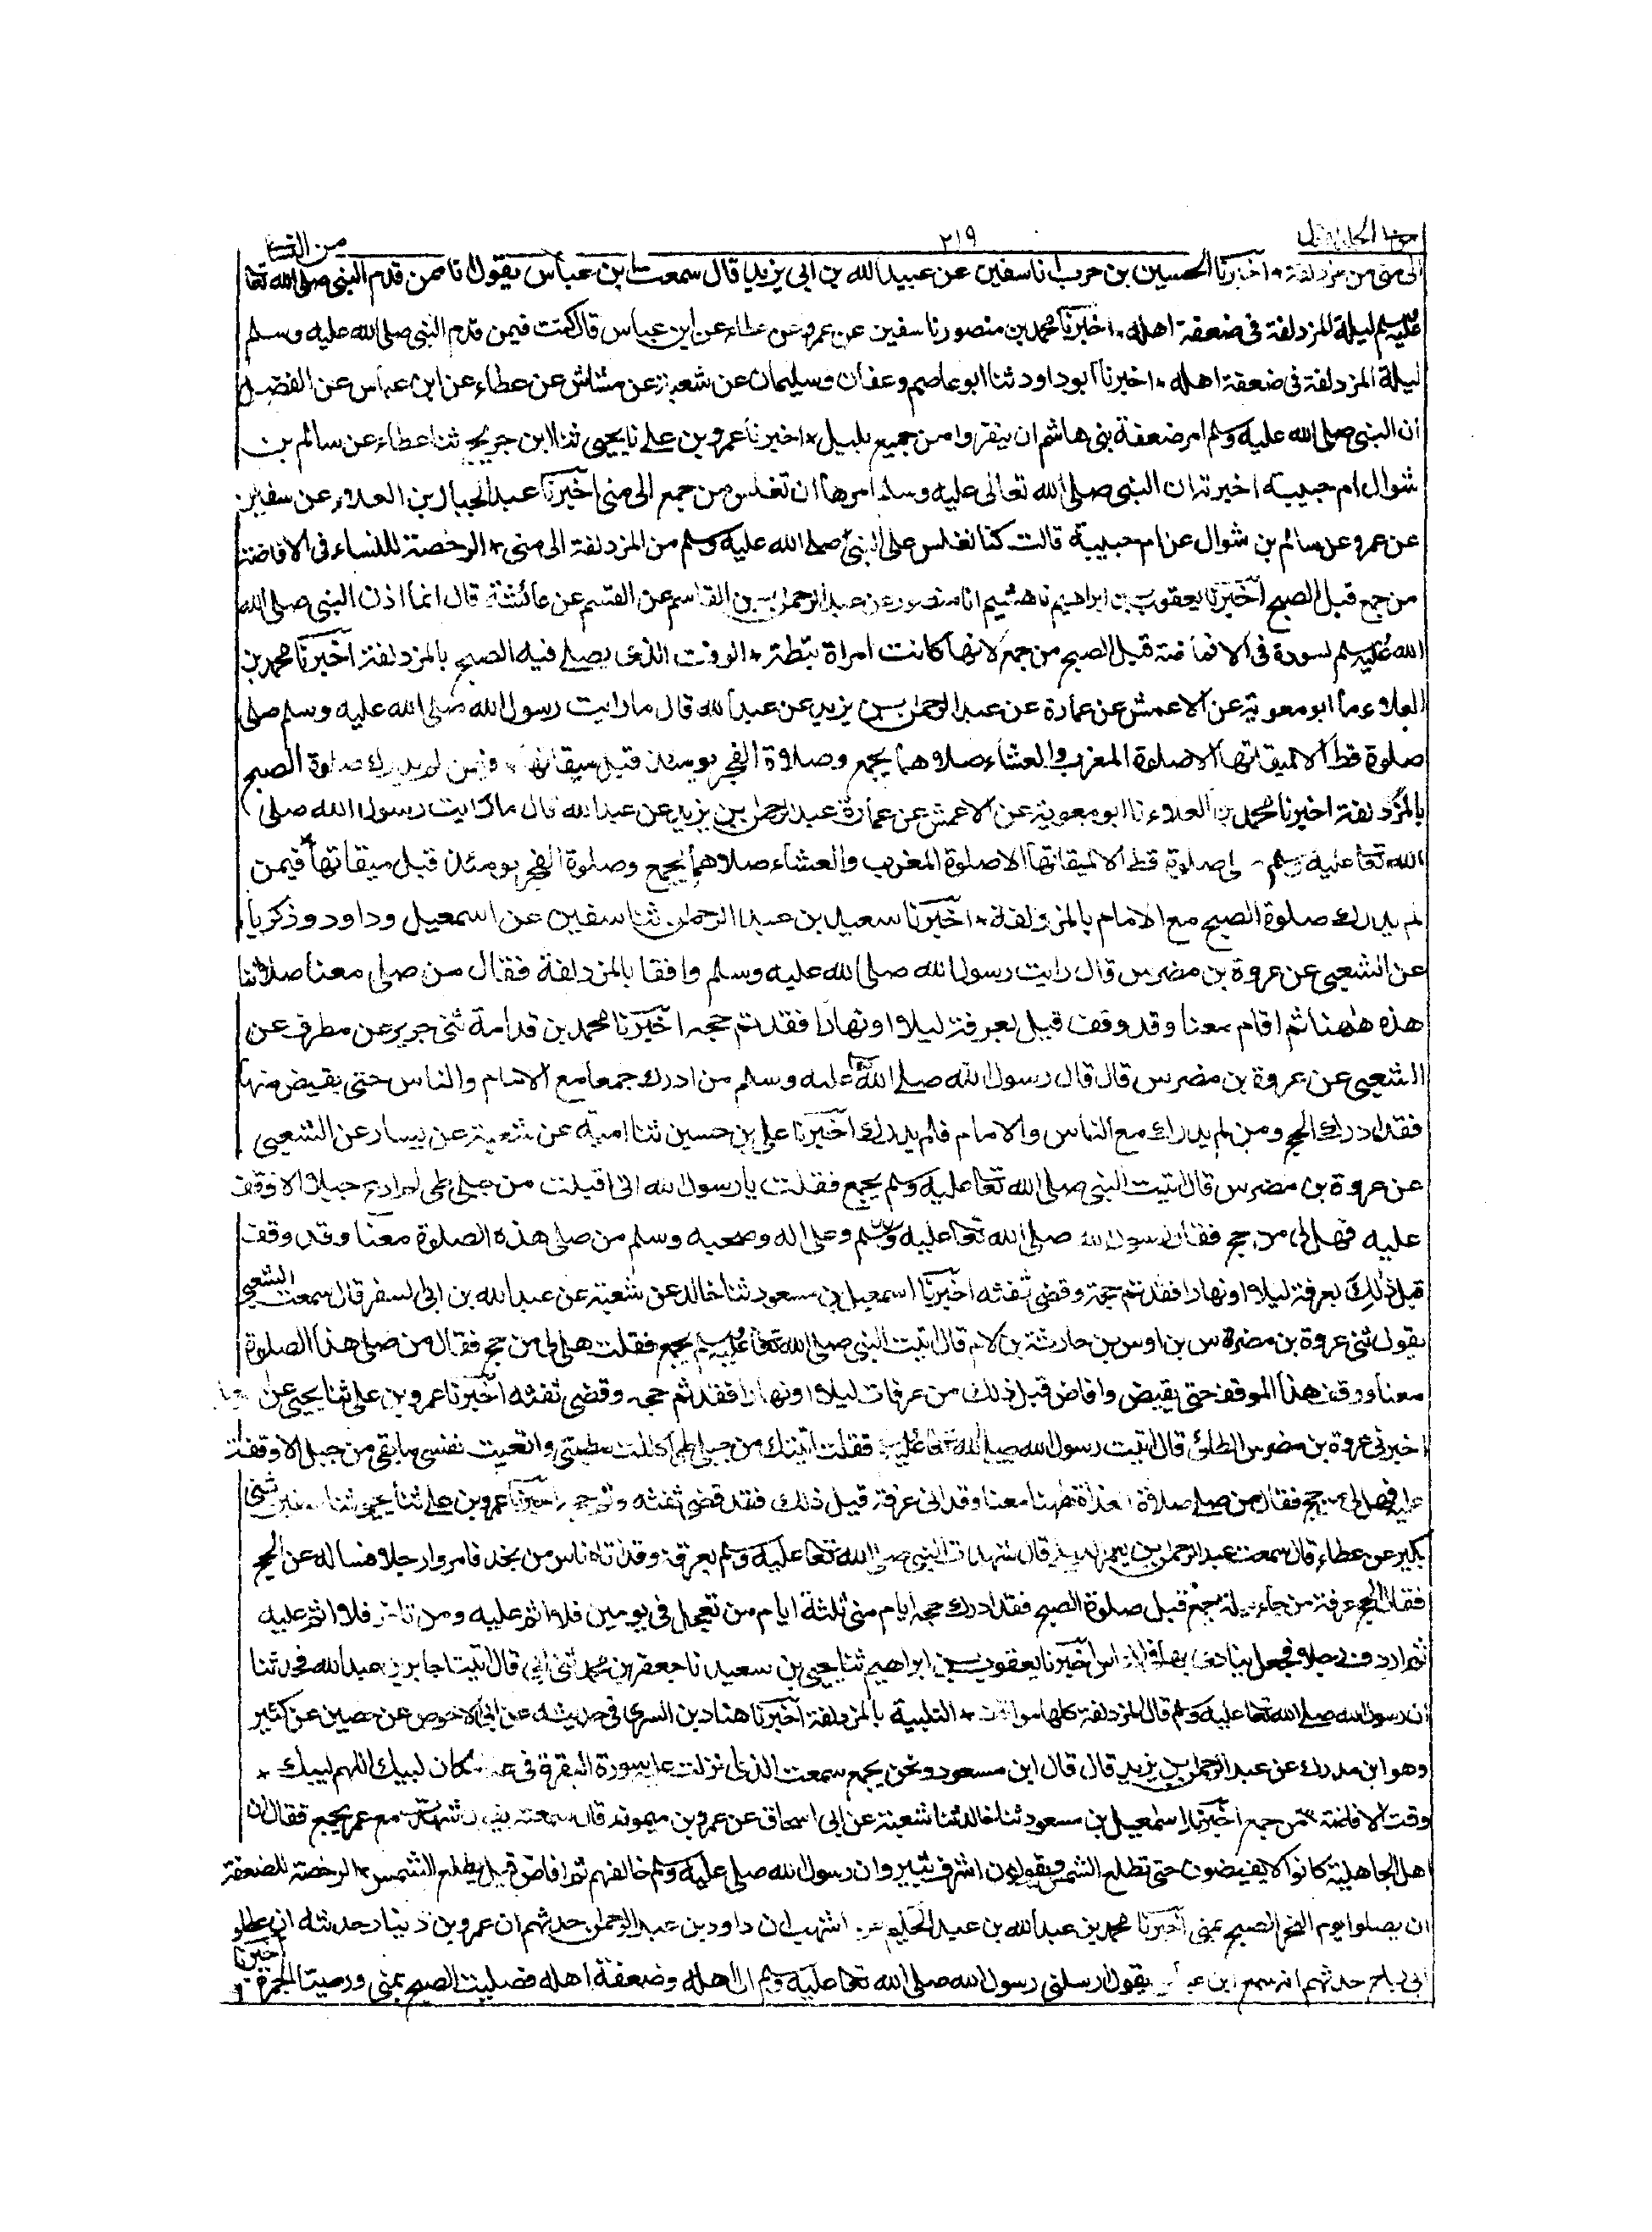 ٢١٩
الى منى من مزدلفة * اخبرنا الحسين بن حريث انا سفين عن عبيد الله بن ابى يزيد قال سمعت ابن عباس يقول انا من قدم النبى صلى الله تعا
عليه وسلم ليلة المزدلفة فى ضعفة اهله * اخبرنا محمد بن منصور نا سفين عن عمرو عن عطاء عن ابن عباس قال كنت فيمن قدم النبى صلى الله عليه وسلم
ليلة المزدلفة فى ضعفة اهله * اخبرنا ابو داود ثنا ابو عاصم وعفان وسليمان عن شعبة عن مشاش عن عطاء عن ابن عباس عن الفضل
ان النبى صلى الله عليه وسلم امر ضعفة بنى هاشم ان ينفروا من جميع بليل * اخبرنا عمرو بن على نا يحيى ثنا ابن جريج ثنا عطاء عن سالم بن
شوال ام حبيبة اخبرته ان النبى صلى الله تعالى عليه وسلم امرها ان تغلس من جمع الى منى اخبرنا عبد الجبار بن العلاء عن سفين
عن عمرو عن سالم بن شوال عن ام حبيبة قالت كنا نغلس على النبى صلى الله عليه وسلم من المزدلفة الى منى * الرخصة للنساء فى الافاضة
من جمع قبل الصبح اخبرنا يعقوب بن ابراهيم نا هشيم انا منصور عن عبد الرحمن بن القاسم عن القسم عن عائشة قال انما اذن النبى صلى الله
الله عليه وسلم لسودة فى الافاضة قبل الصبح من جمع لانها كانت امراة ثبطة * الوقت الذى يصلى فيه الصبح بالمزدلفة اخبرنا محمد بن
العلاء نا ابو معوية عن الاعمش عن عمارة عن عبد الرحمن بن يزيد عن عبد الله قال ما رايت رسول الله صلى الله عليه وسلم صلى
صلوة قط الا لميقاتها الا صلوة المغرب والعشاء صلاهما بجمع وصلاة الفجر يومئذ قبل ميقاتها * فيمن لم يدرك صلوة الصبح
بالمزدلفة اخبرنا محمد بن العلاء نا ابو معوية عن الاعمش عن عمارة عبد الرحمن بن يزيد عن عبد الله قال ما رايت رسول الله صلى
الله تعا عليه وسلم صلى صلوة قط الا لميقاتها الا صلوة المغرب والعشاء صلاهما بجمع وصلوة الفجر يومئذ قبل ميقاتها * فيمن
لم يدرك صلوة الصبح مع الامام بالمزدلفة * اخبرنا سعيد بن عبد الرحمن ثنا سفين عن اسمعيل وداود وذكريا
عن الشعبى عن عروة بن مضرس قال رايت رسول الله صلى الله عليه وسلم وافقا بالمزدلفة فقال من صلى معنا صلاتنا
هذه ههنا ثم اقام معنا وقد وقف قبل بعرفة ليلا او نهارا فقد تم حجه اخبرنا محمد بن قدامة ثنى جرير عن مطرف عن
الشعبى عن عروة بن مضرس قال قال رسول الله صلى الله عليه وسلم من ادرك جمعا مع الامام والناس حتى يفيض منها
فقد ادرك الحج ومن لم يدرك مع الناس والامام فلم يدرك اخبرنا على بن حسين ثنا امية عن شعبة عن يسار عن الشعبى
عن عروة بن مضرس قال اتيت النبى صلى الله تعا عليه وسلم بجمع فقلت يا رسول الله انى اقبلت من جبلى طى لم ادع حبلا الا وقفت
عليه فهل لى من حج فقال رسول الله صلى الله تعا عليه وسلم وعلى اله وصحبه وسلم من صلى هذه الصلوة معنا وقد وقف
قبل ذلك بعرفة ليلا او نهارا فقد تم حجه وقضى تفثه اخبرنا اسمعيل بن مسعود ثنا خالد عن شعبة عن عبد الله بن ابى السفر قال سمعت الشعبى
يقول ثنى عروة بن مضرس بن اوس بن حارثة بن لام قال اتيت النبى صلى الله تعا عليه وسلم بجمع فقلت هل لى من حج فقال من صلى هذا الصلوة
معنا ووقف هذا الموقف حتى يفيض وافاض قبل ذلك من عرفات ليلا او نهارا فقد تم حجه وقضى تفثه اخبرنا عمرو بن على ثنا يحيى عن
اخبرنى عروة بن مضرس الطائى قال اتيت رسول الله صلى الله تعا عليه فقلت اتيتك من جبلى طى اكللت مطيتى واتعبت نفسى ما بقى من حبل الا وقفت
عليه فهل لى من حج فقال من صلى صلاة الغداة ههنا معنا وقد اتى عرفة قبل ذلك فقد قضى تفثه وتم حجه اخبرنا عمرو بن على ثنا يحيى ثنا سفين ثنى
بكير عن عطاء قال سمعت عبد الرحمن بن يعمر الديلى قال شهدت النبى صلى الله تعا عليه وسلم بعرفة وقد اتاه ناس من نجد فامروا رجلا فساله عن الحج
فقال الحج عرفة من جاء ليلة جمع قبل صلوة الصبح فقد ادرك حجه ايام منى ثلثة ايام من تعجل فى يومين فلا اثم عليه ومن تاخر فلا اثم عليه
ثم اردف رجلا فجعل ينادى بها فى الناس اخبرنا يعقوب بن ابراهيم ثنا يحيى بن سعيد نا جعفر بن محمد ثنى ابى قال اتيت جابر بن عبد الله فحدثنا
ان رسول الله صلى الله تعا عليه وسلم قال المزدلفة كلها موقف * التلبية بالمزدلفة اخبرنا هناد بن السرى فى حديثه عن ابى الاحوص عن حصين عن كثير
وهو ابن مدرك عن عبد الرحمن بن يزيد قال قال ابن مسعود ونحن بجمع سمعت الذى نزلت عليه سورة البقرة فى هذا المكان لبيك اللهم لبيك *
وقت الافاضة من جمع اخبرنا اسمعيل بن مسعود ثنا خالد ثنا شعبة عن ابى اسحاق عن عمرو بن ميمون قال سمعته يقول شهدت مع عمر بجمع فقال ان
اهل الجاهلية كانوا لا يفيضون حتى تطلع الشمس ويقولون اشرق ثبير وان رسول الله صلى عليه وسلم خالفهم ثم افاض قبل يطلع الشمس * الرخصة للضعفة
ان يصلوا يوم النحر الصبح بمنى اخبرنا محمد بن عبد الله بن عبد الحكيم عن اشهب ان داود بن عبد الرحمن حدثهم ان عمرو بن دينار حدثه ان عطاء
ابى رباح حدثهم انه سمع ابن عباس يقول ارسلنى رسول الله صلى الله تعا عليه وسلم اهله وضعفة اهله فصليت الصبح بمنى ورمينا الجمرة * اخبرنا